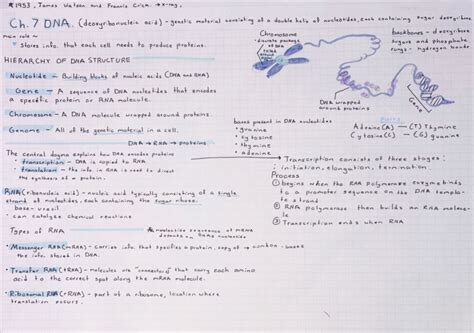 * 1953, James Watson and Francis Crick → x-ray.
Ch.7 DNA. (deoxyribonucleic acid) - genetic material consisting of a double helix of nucleotides, each containing sugar deoxyribose
main role ~
• stores info. that each cell needs to produce proteins.
HIERARCHY OF DNA STRUCTURE
Nucleotide - Building blocks of nucleic acids (DNA and RNA)
Gene - A sequence of DNA nucleotides that encodes
a specific protein or RNA molecule.
Chromosome - A DNA molecule wrapped around proteins.
Genome - All of the genetic material in a cell.
DNA → RNA → proteins
The central dogma explains how DNA encodes proteins
• transcription - DNA is copied to RNA
• translation - the info. in RNA is used to direct
the synthesis of a protein.
RNA (ribonucleic acid) - nucleic acid typically consisting of a single
strand of nucleotides, each containing the sugar ribose.
base - uracil
• can catalyze chemical reactions
Types of RNA
nucleotide sequence of mRNA
depends on DNA nucleotides
• Messenger RNA (mRNA) - carries info. that specifies a protein, copy of → codon - bases
the info. stored in DNA.
• Transfer RNA (tRNA) - molecules are "connectors" that carry each amino
acid to the correct spot along the mRNA molecule.
• Ribosomal RNA (rRNA) - part of a ribosome, location where
translation occurs.
Chromosome
DNA wrapped
around proteins
Gene
backbone - deoxyribose
sugars and phosphate
rungs - hydrogen bonds
bases present in DNA nucleotides
• guanine
• cytosine
• thymine
• adenine
Pairs
Adenine (A) — (T) Thymine
Cytosine (C) — (G) guanine
Transcription consists of three stages:
initiation, elongation, termination
Process
① begins when the RNA polymerase enzyme binds
to a promoter sequence on the DNA template
strand
② RNA polymerase then builds an RNA molecule
③ Transcription ends when RNA